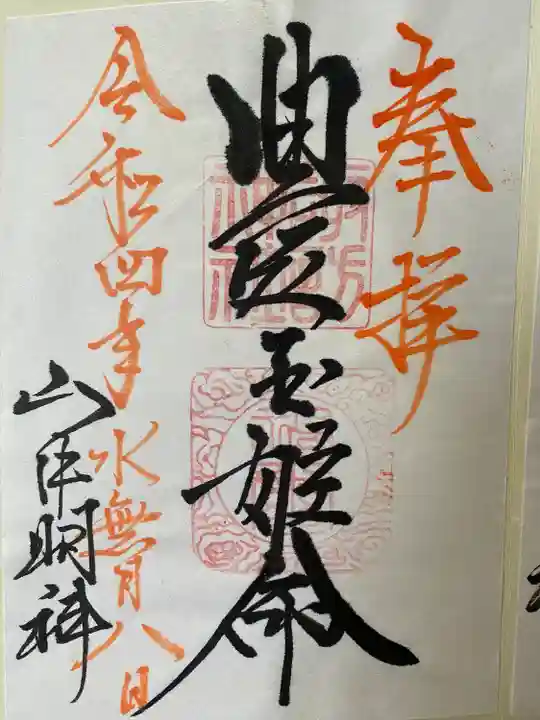 奉拝
豊玉姫命
令和四年水無月八日
明神